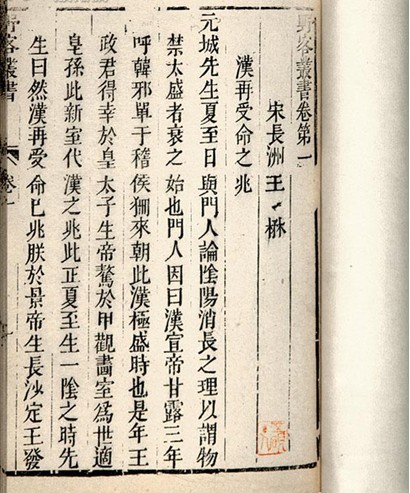 野客叢書卷第一
宋長洲王楙
漢再受命之兆
元城先生夏至日與門人論陰陽消長之理以謂物
禁太盛者衰之始也門人因曰漢宣帝甘露三年
呼韓邪單于稽侯狦來朝此漢極盛時也是年王
政君得幸於皇太子生帝驁於甲觀畫室爲世適
皇孫此新室代漢之兆此正夏至生一陰之時先
生曰然漢再受命已兆朕於景帝生長沙定王發
野客叢書